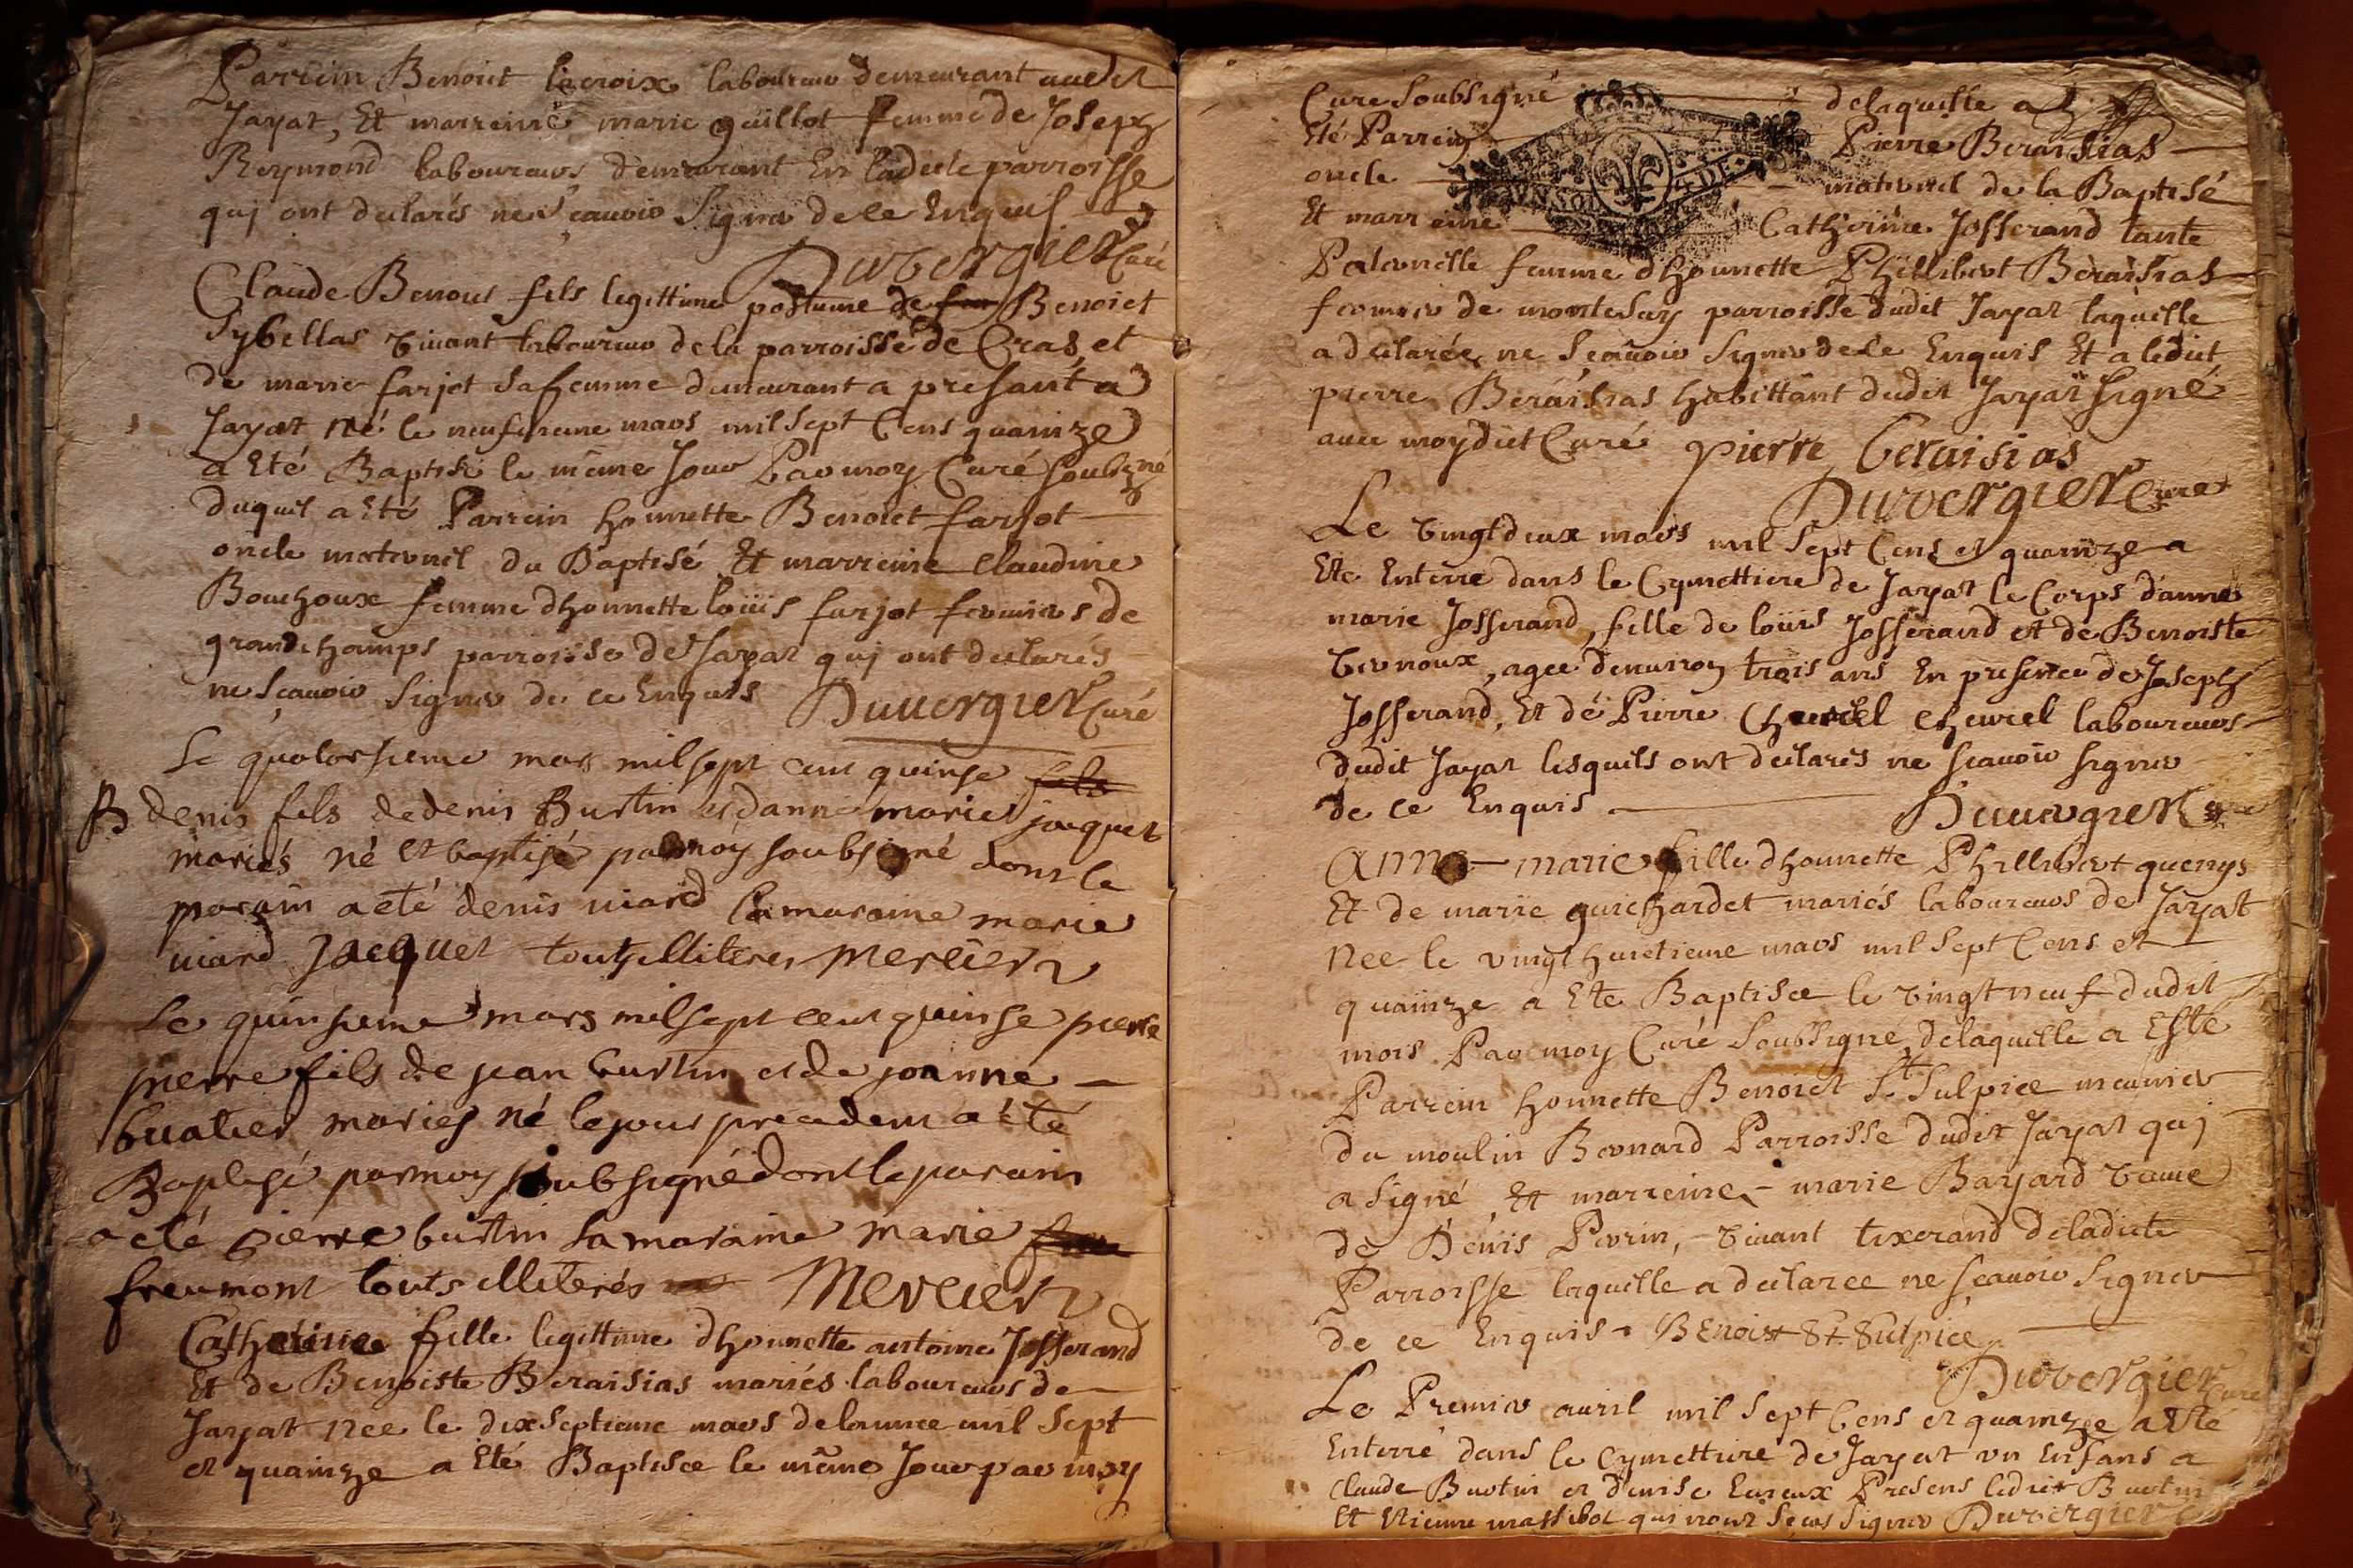 Parrein Benoict lacroix laboureur demeurant audit
Jayat, Et marreine marie guillot femme de Joseph
Reymond laboureurs demeurant En ladicte parroisse
quj ont declarés ne Scauoir Signer de ce Enquis
Duvergier Curé
Claude Benoict fils legittime postume de feu Benoict
Sybellas viuant laboureur de la parroisse de Cras, et
de marie farjot sa femme demeurant a presant a
Jayat né le neufvieme mars mil sept Cens quainze
a Eté Baptisé le méme Jour Par moy Curé soubsigné
duquel a Eté Parrein honnette Benoict farjot
oncle maternel du Baptisé Et marreine Claudine
Bouchoux femme dhonnette loüis farjot fermiers de
grandchamps parroisse de Jayat quj ont declarés
ne Scauoir Signer de ce Enquis Duuergier Curé
Le quatorsieme mars mil sept cent quinse fils
B denis fils de denis Burtin et danne marie jacquet
mariés né et baptisé par moy soubsigné dont le
parain a eté denis uiard la maraine marie
uiard Jacquet touts illiteres Mercier
Le quinsieme mars mil sept cent quinse pierre
pierre fils de jean burtin et de joanne
buatier mariés né le jour precedent a été
Baptisé par moy soubsigné dont le parain
a eté pierre burtin sa maraine marie
freumont touts illiterés Mercier
Catherine fille legittime dhonnette antoine Josserand
Et de Benoiste Beraisias mariés laboureurs de
Jayat Née le dix Septieme mars de lannee mil Sept
et quainze a Eté Baptisée le méme Jour par moy
Curé Soubsigné delaquelle a
Eté Parrein Pierre Beraisias
oncle maternel de la Baptisé
Et marreine Catherine Josserand tante
Paternelle femme dhonnette Phillibert Beraisias
fermier de montesuy parroisse dudit Jayat laquelle
a declarée ne Scauoir Signer de ce Enquis Et a ledict
pierre Beraisias habittant dudit Jayat Signé
auec moydict Curé pierre beraisias
Duvergier Curé
Le vingtdeux mars mil Sept Cens et quainze a
Eté Enterré dans le Cymettiere de Jayat le Corps danne
marie Josserand, fille de loüis Josserand et de Benoiste
Vernoux, agee denuiron trois ans En presence de Joseph
Josserand, Et de Pierre cheurel laboureurs
dudit Jayat lesquels ont declarés ne scauoir signer
de ce Enquis Duuergier Curé
Anne-marie fille dhonnette Phillibert quenys
Et de marie guichardet mariés laboureurs de Jayat
Née le vingt huictieme mars mil Sept Cens et
quainze a Eté Baptisée le vingt neuf dudit
mois Par moy Curé Soubsigné, delaquelle a Esté
Parrein honnette Benoict St Sulpice meunier
du moulin Bernard Parroisse dudit Jayat quj
a signé, Et marreine - marie Bayard veuue
de Denis Perrin, - viuant tixerand de ladicte
Parroisse laquelle a declaree ne scauoir Signer
de ce Enquis Benoist St. Sulpice
Duvergier Curé
Le Premier auril mil Sept Cens et quainze a Eté
Enterré dans le Cymettiere de Jayat un Enfans a
Claude Burtin et denise Presens ledict Burtin
Et Etienne massibot quj n'ont Sceus Signer Duvergier